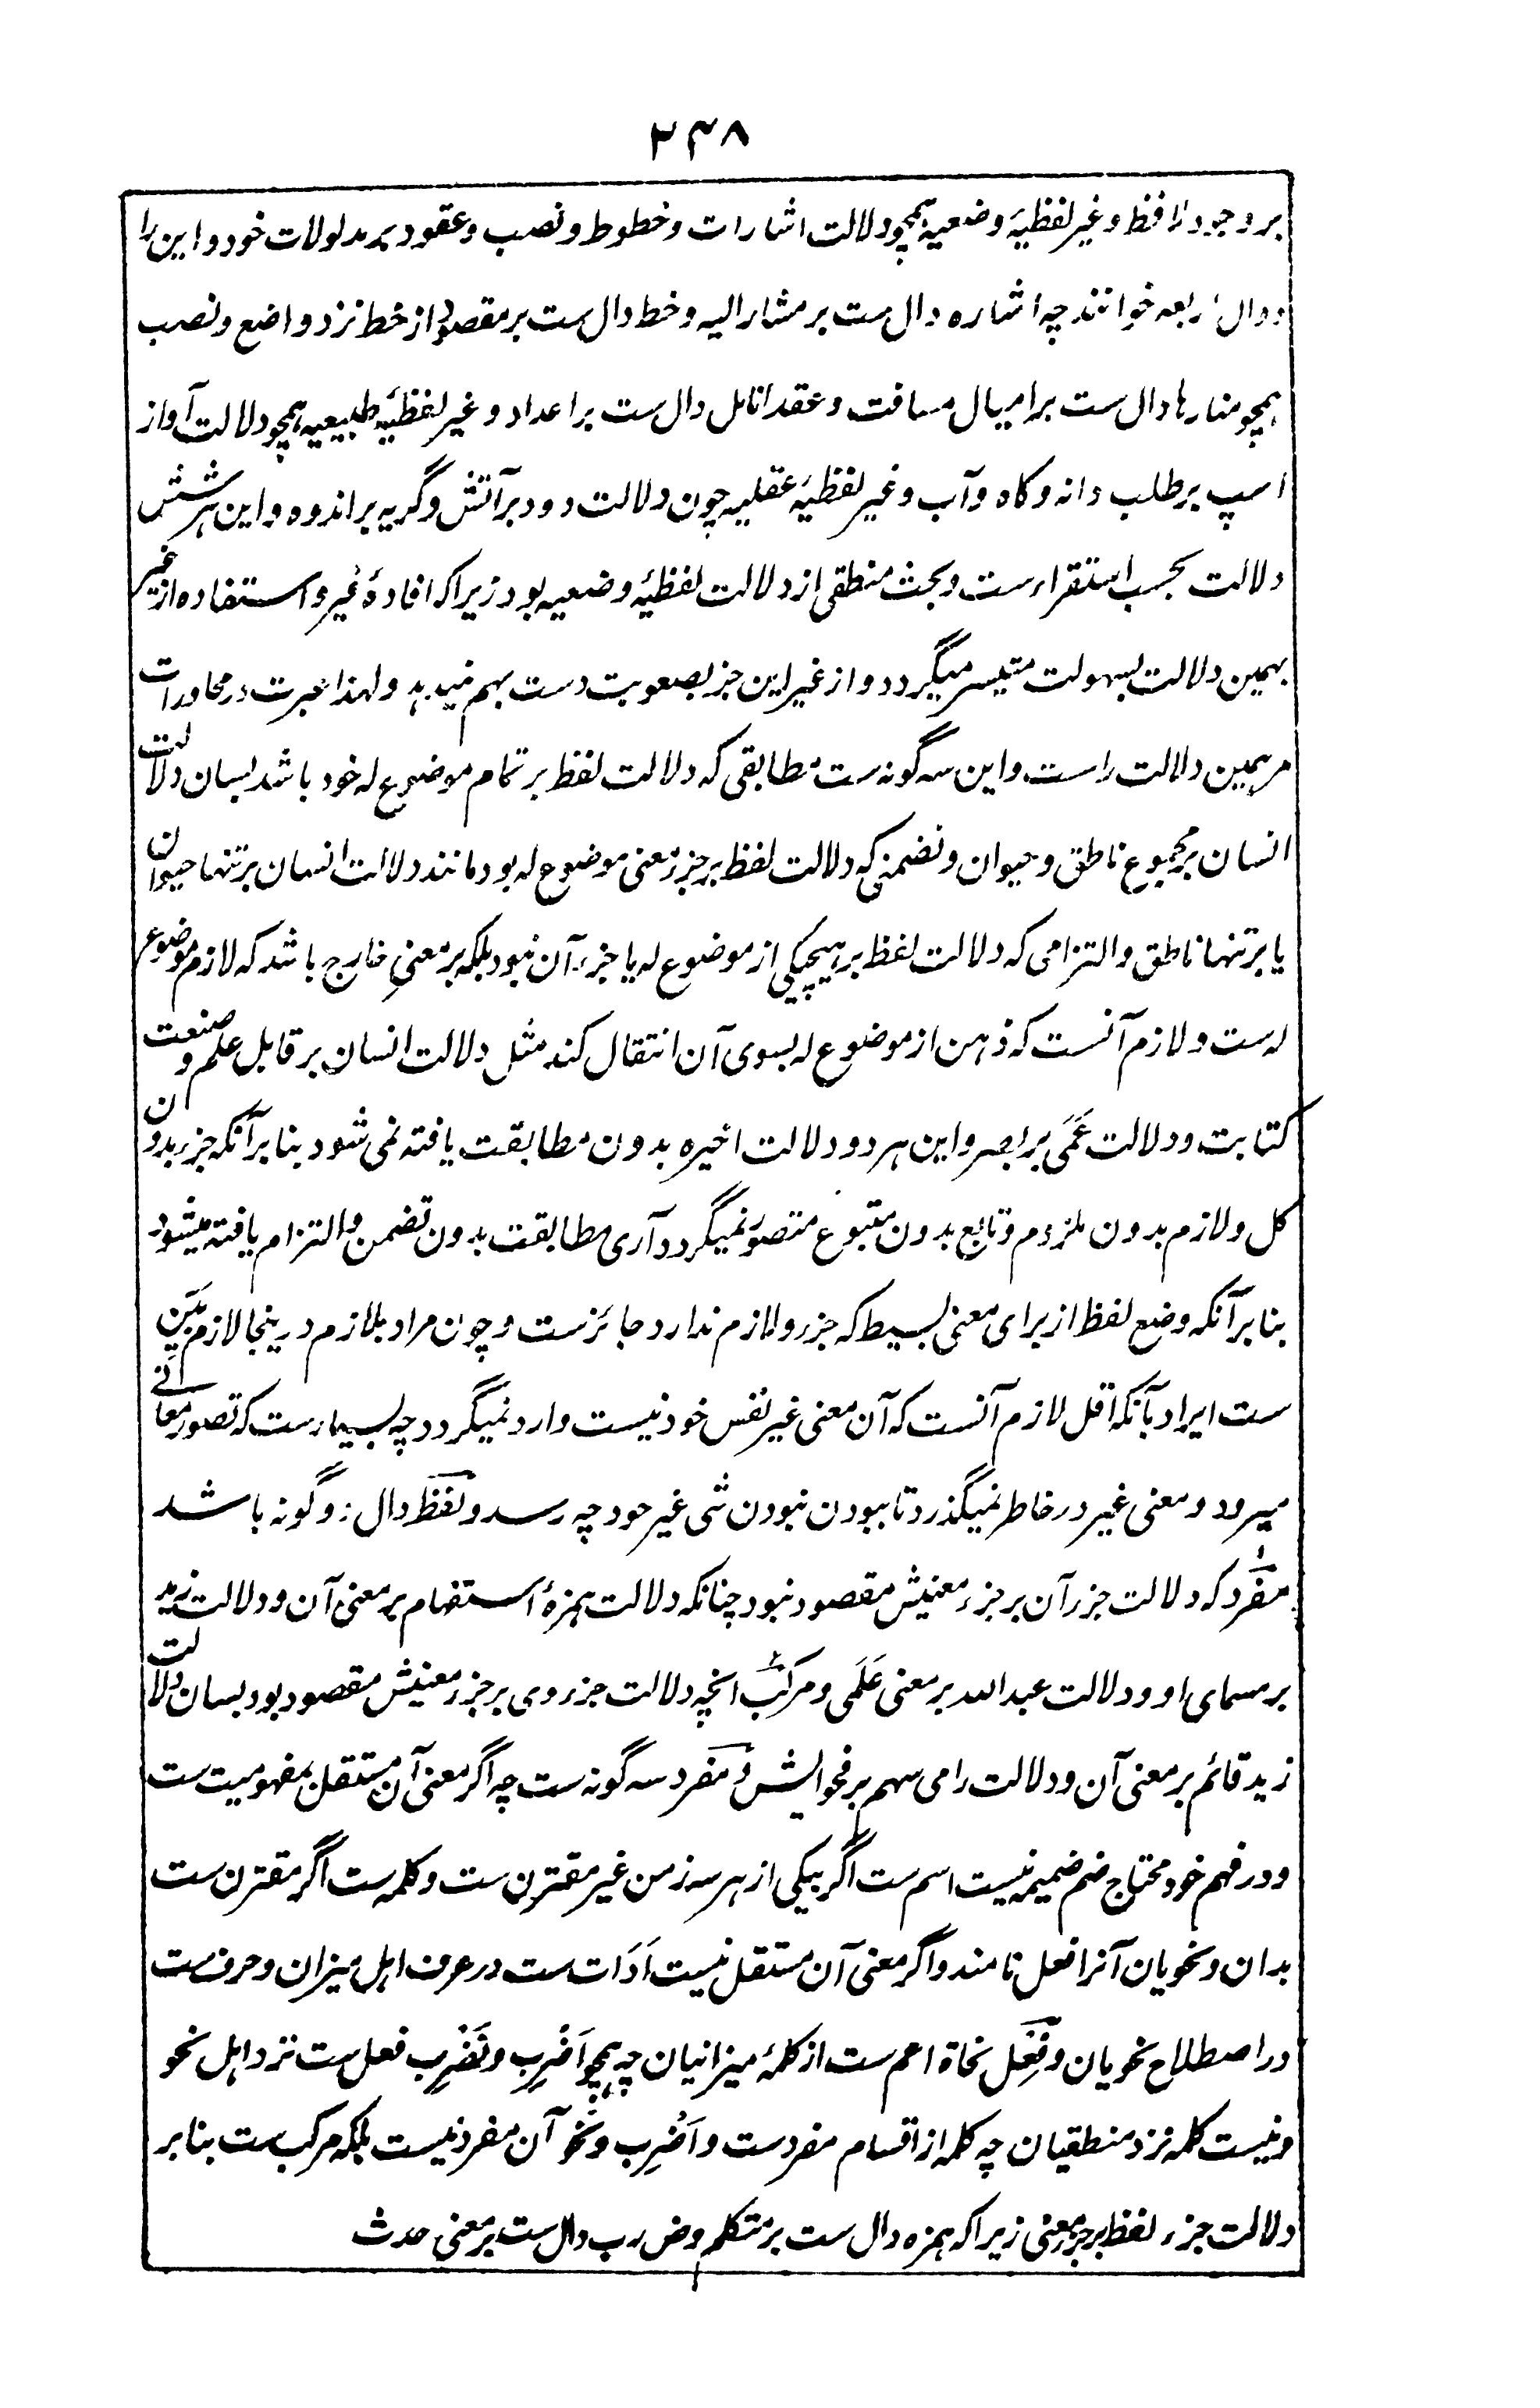 ۲۴۸
بر وجود لافظ و غیر لفظیۂ وضعیہ همچو دلالت اشارات و خطوط و نصب و عقود بر مدلولات خود و این را
دوال اربعہ خوانند چہ اشاره دال ست بر مشار الیہ و خط دال ست بر مقصود از خط نزد واضع و نصب
همچو منارها دال ست بر امیال مسافت و عقد انامل دال ست بر اعداد و غیر لفظیۂ طبیعیہ همچو دلالت آواز
اسپ بر طلب دانہ و کاه و آب و غیر لفظیۂ عقلیہ چون دلالت دود بر آتش و گریہ بر اندوه و این هر شش
دلالت بحسب استقراء ست و بحث منطقی از دلالت لفظیۂ وضعیہ بود زیرا کہ افادۂ غیر و استفاده از غیر
بهمین دلالت بسهولت متیسر میگردد و از غیر این جز بصعوبت دست بهم نمیدہد و لهذا عبرت در محاورات
مر همین دلالت راست و این سہ گونہ ست مطابقی کہ دلالت لفظ بر تمام موضوع لہ خود باشد بسان دلالت
انسان بر مجموع ناطق و حیوان و تضمنی کہ دلالت لفظ بر جزء معنی موضوع لہ بود مانند دلالت انسان بر تنها حیوان
یا بر تنها ناطق و التزامی کہ دلالت لفظ بر هیچیکی از موضوع لہ یا جزء آن نبود بلکہ بر معنیِ خارج باشد کہ لازم موضوع
لہ ست و لازم آنست کہ ذهن از موضوع لہ بسوی آن انتقال کند مثل دلالت انسان بر قابل علم و صنعت
کتابت و دلالت عَمَی بر بصر و این هر دو دلالت اخیره بدون مطابقت یافتہ نمی شود بنا بر آنکہ جزء بدون
کل و لازم بدون ملزوم و تابع بدون متبوع متصور نمیگردد آری مطابقت بدون تضمن و التزام یافتہ میشود
بنا بر آنکہ وضع لفظ از برای معنی بسیط کہ جزء و لازم ندارد جائز ست و چون مراد بلازم درینجا لازم بیّن
ست ایراد بآنکہ اقل لازم آنست کہ آن معنی غیر نفس خود نیست وارد نمیگردد چہ بسیار ست کہ تصور معانے
میرود و معنی غیر در خاطر نمیگذرد تا ببودن نبودن شی غیر خود چہ رسد و لفظ دال دو گونہ باشد
مفرد کہ دلالت جزء آن بر جزء معنیش مقصود نبود چنانکہ دلالت همزۂ استفهام بر معنی آن و دلالت زید
بر مسمای او و دلالت عبد اللہ بر معنی عَلَمی و مرکب انچہ دلالت جزء وی بر جزء معنیش مقصود بود بسان دلالت
زید قائم بر معنی آن و دلالت رامی سهم بر فحوایش و مفرد سہ گونہ ست چہ اگر معنی آن مستقل بمفهومیت ست
و در فهم خود محتاج ضم ضمیمہ نیست اسم ست اگر بیکی از هر سہ زمن غیر مقترن ست و کلمہ ست اگر مقترن ست
بدان و نحویان آنرا فعل نامند و اگر معنی آن مستقل نیست اَدَات ست در عرف اهل میزان و حرف ست
در اصطلاح نحویان و فعل نحاة اعم ست از کلمۂ میزانیان چہ همچو اَضرِب و نَضرِب فعل ست نزد اهل نحو
و نیست کلمہ نزد منطقیان چہ کلمہ از اقسام مفرد ست و اَضرِب و نحو آن مفرد نیست بلکہ مرکب ست بنا بر
دلالت جزء لفظ بر جزء معنی زیرا کہ همزه دال ست بر متکلم و ض ر ب دال ست بر معنی حدث